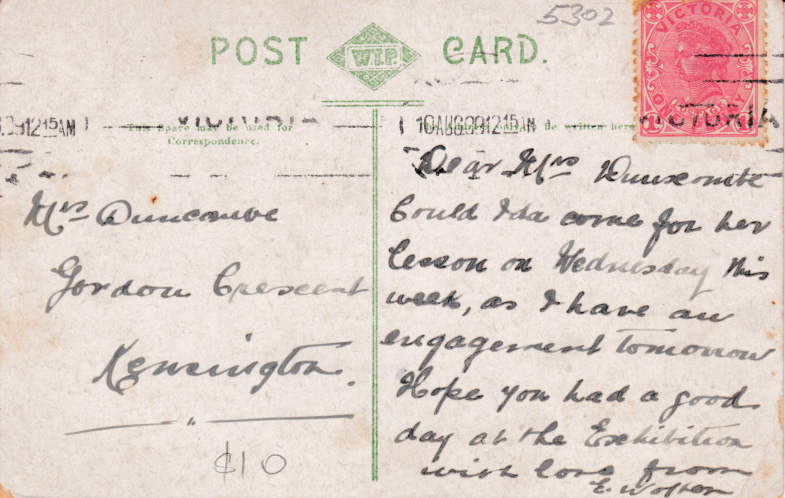 5302
POST W.T.P. CARD.
VICTORIA
ONE PENNY
10 AUG 09 12 15 AM VICTORIA
This Space may be used for
Correspondence.
be written here
Mrs Duncombe
Gordon Crescent
Kensington.
$10
Dear Mrs Dunscombe
Could Ida come for her
lesson on Wednesday this
week, as I have an
engagement tomorrow
Hope you had a good
day at the Exhibition
with love from
E.